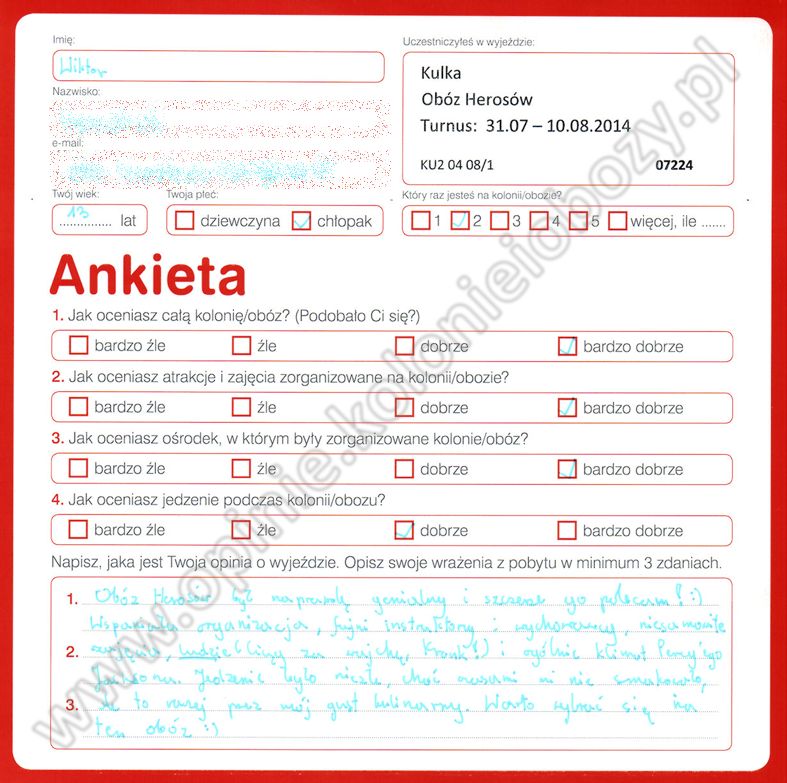 Imię:
Wiktor
Nazwisko:
e-mail:
Twój wiek:
13 lat
Twoja płeć:
dziewczyna chłopak
Uczestniczyłeś w wyjeździe:
Kulka
Obóz Herosów
Turnus: 31.07 – 10.08.2014
KU2 04 08/1 07224
Który raz jesteś na kolonii/obozie?
1 2 3 4 5 więcej, ile .......
Ankieta
1. Jak oceniasz całą kolonię/obóz? (Podobało Ci się?)
bardzo źle źle dobrze bardzo dobrze
2. Jak oceniasz atrakcje i zajęcia zorganizowane na kolonii/obozie?
bardzo źle źle dobrze bardzo dobrze
3. Jak oceniasz ośrodek, w którym były zorganizowane kolonie/obóz?
bardzo źle źle dobrze bardzo dobrze
4. Jak oceniasz jedzenie podczas kolonii/obozu?
bardzo źle źle dobrze bardzo dobrze
Napisz, jaka jest Twoja opinia o wyjeździe. Opisz swoje wrażenia z pobytu w minimum 3 zdaniach.
1. Obóz Herosów był naprawdę genialny i szczerze go polecam! :)
Wspaniała organizacja, fajni instruktorzy i wychowawcy, niesamowite
2. zajęcia, ludzie i ogólnie klimat Percy'ego
Jacksona. Jedzenie było niezłe, choć czasami mi nie smakowało,
3. ale to raczej przez mój gust kulinarny. Warto wybrać się na
ten obóz :)
www.opinie.kolonieiobozy.pl